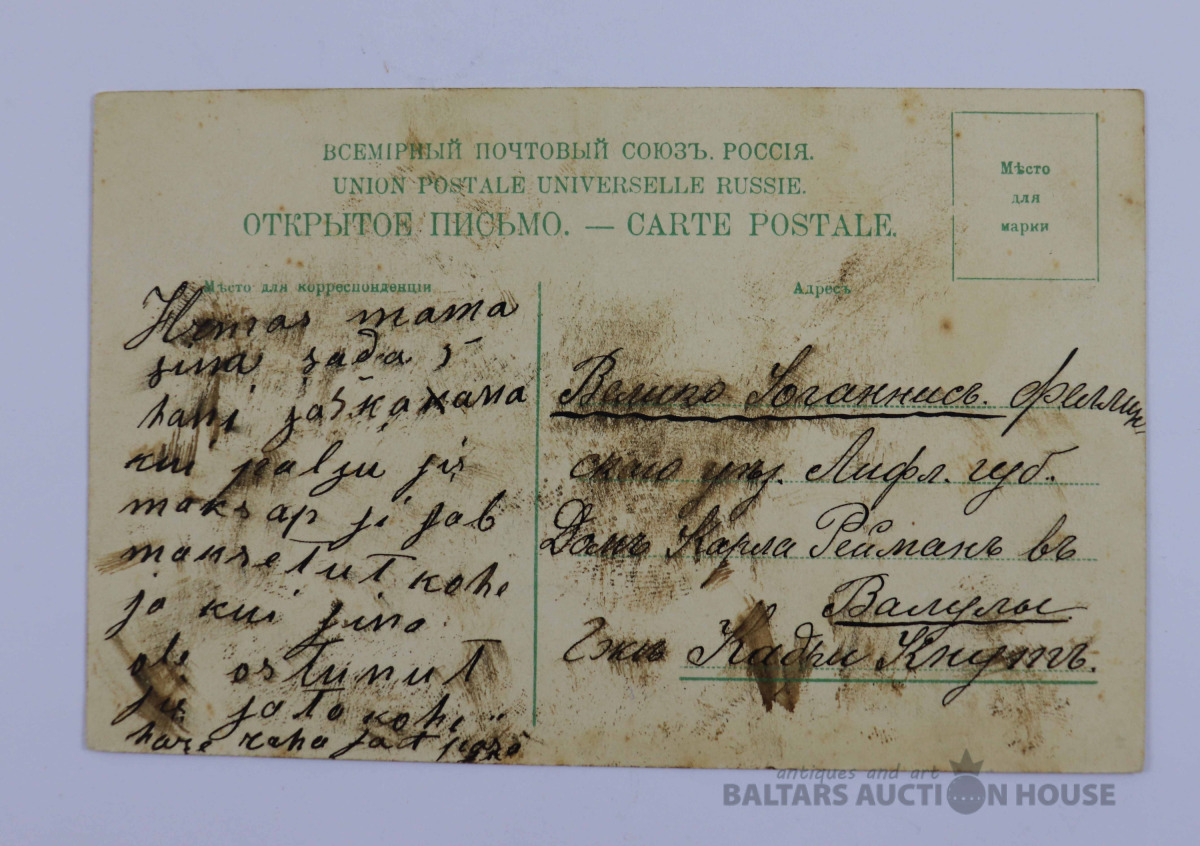 ВСЕМІРНЫЙ ПОЧТОВЫЙ СОЮЗЪ. РОССІЯ.
UNION POSTALE UNIVERSELLE RUSSIE.
ОТКРЫТОЕ ПИСЬМО. — CARTE POSTALE.
Мѣсто
для
марки
Мѣсто для корреспонденціи
mama
sina sada 5
hani
kui palsu
maksap ji sab
maksetut kohe
ja kui sina
ole ostunut
sis sato kohe
raha
Адресъ
Велико Іоганнисъ. Феллин-
ского уѣз. Лифл. губ.
Домъ Карла Рейманъ въ
Валулы
Гжѣ Кадри Кнутъ.
antiques and art
BALTARS AUCTION HOUSE